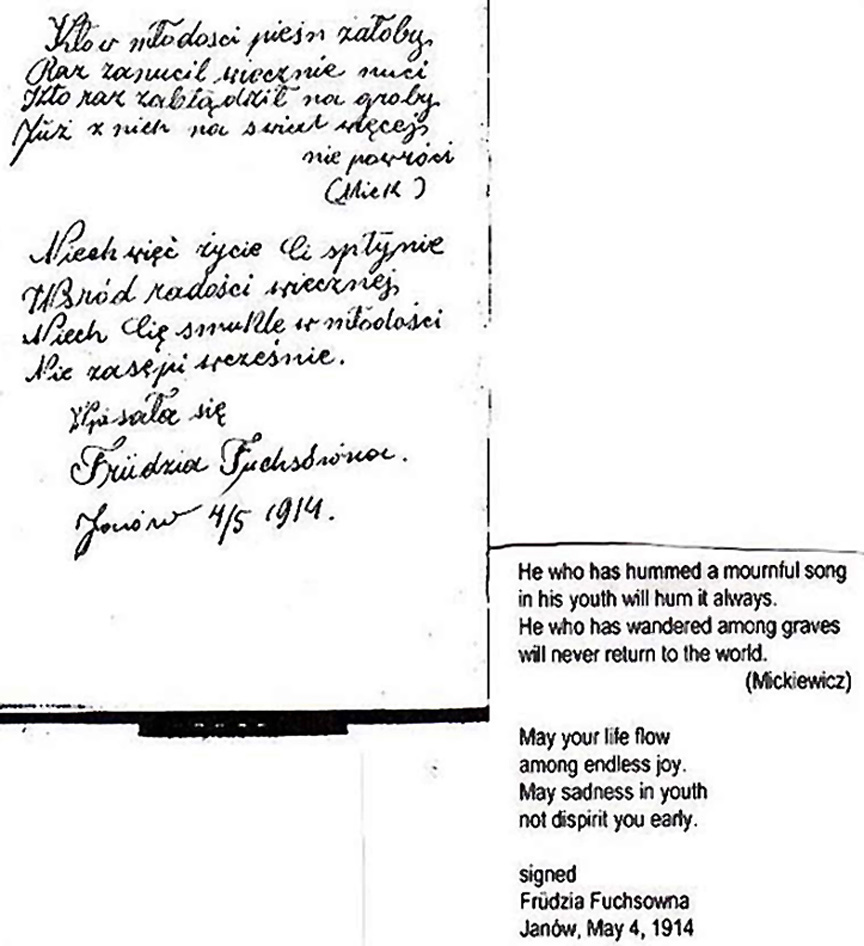 Kto w młodości pieśn żałoby
Raz zanucił wiecznie nuci
Kto raz zabłądził na groby
Już z nich na świat więcej
nie powróci
(Mick)
Niech więć życie Ci spłynie
Wśród radości wiecznej
Niech Cię smutke w młodości
Nie zasępi wcześnie.
Wpisała się
Früdzia Fuchsówna.
Janów 4/5 1914.
He who has hummed a mournful song
in his youth will hum it always.
He who has wandered among graves
will never return to the world.
(Mickiewicz)
May your life flow
among endless joy.
May sadness in youth
not dispirit you early.
signed
Früdzia Fuchsowna
Janów, May 4, 1914